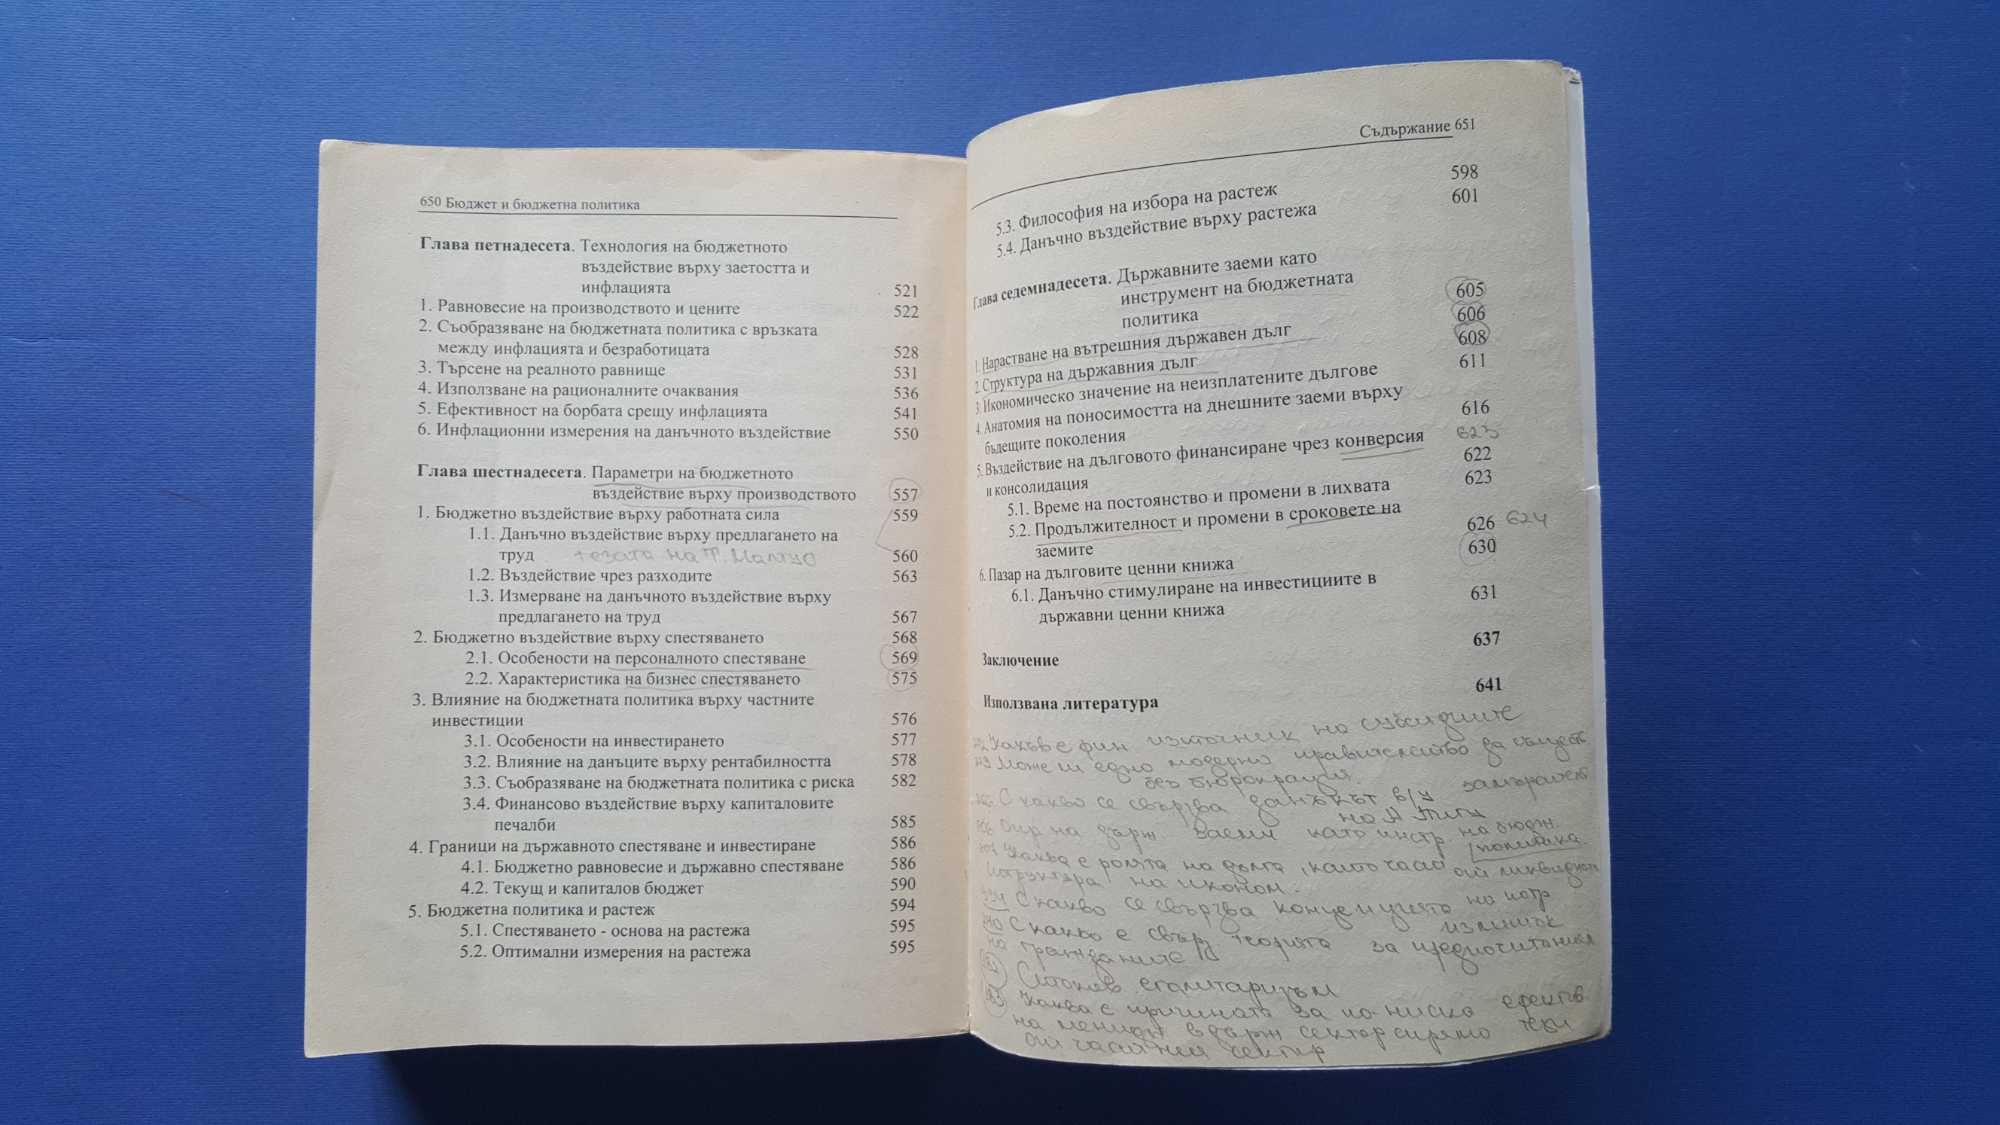 650 Бюджет и бюджетна политика
Глава петнадесета. Технология на бюджетното
въздействие върху заетостта и
инфлацията 521
1. Равновесие на производството и цените 522
2. Съобразяване на бюджетната политика с връзката
между инфлацията и безработицата 528
3. Търсене на реалното равнище 531
4. Използване на рационалните очаквания 536
5. Ефективност на борбата срещу инфлацията 541
6. Инфлационни измерения на данъчното въздействие 550
Глава шестнадесета. Параметри на бюджетното
въздействие върху производството 557
1. Бюджетно въздействие върху работната сила 559
1.1. Данъчно въздействие върху предлагането на
труд тезата на Т. Малтус 560
1.2. Въздействие чрез разходите 563
1.3. Измерване на данъчното въздействие върху
предлагането на труд 567
2. Бюджетно въздействие върху спестяването 568
2.1. Особености на персоналното спестяване 569
2.2. Характеристика на бизнес спестяването 575
3. Влияние на бюджетната политика върху частните
инвестиции 576
3.1. Особености на инвестирането 577
3.2. Влияние на данъците върху рентабилността 578
3.3. Съобразяване на бюджетната политика с риска 582
3.4. Финансово въздействие върху капиталовите
печалби 585
4. Граници на държавното спестяване и инвестиране 586
4.1. Бюджетно равновесие и държавно спестяване 586
4.2. Текущ и капиталов бюджет 590
5. Бюджетна политика и растеж 594
5.1. Спестяването - основа на растежа 595
5.2. Оптимални измерения на растежа 595
Съдържание 651
5.3. Философия на избора на растеж 598
5.4. Данъчно въздействие върху растежа 601
Глава седемнадесета. Държавните заеми като
инструмент на бюджетната
политика 605
1. Нарастване на вътрешния държавен дълг 606
2. Структура на държавния дълг 608
3. Икономическо значение на неизплатените дългове 611
4. Анатомия на поносимостта на днешните заеми върху
бъдещите поколения 616
5. Въздействие на дълговото финансиране чрез конверсия 623
и консолидация 622
5.1. Време на постоянство и промени в лихвата 623
5.2. Продължителност и промени в сроковете на
заемите 626 624
6. Пазар на дълговите ценни книжа 630
6.1. Данъчно стимулиране на инвестициите в
държавни ценни книжа 631
Заключение 637
Използвана литература 641
Какъв е фин. източник на субсидиите
Може ли едно модерно правителство да съществ
без бюрокрация.
С какво се свързва данъкът в/у замърсяв
на А. Пигу
на държ. заеми като инстр. на бюдж.
политика
Каква е ролята на дълга, като част от ликвидн
структура на иконом.
С какво се свързва концепцията на потр
излишък
С какво е свърз. теорията за предпочитания
на гражданите
Стоков егалитаризъм
Каква е причината за по-ниска ефектив.
на менидж. в държ сектор спрямо
от частния сектор